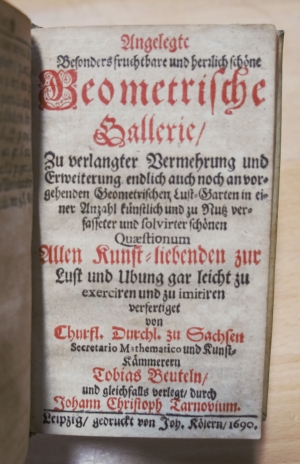 Angelegte
Besonders fruchtbare und herzlich schöne
Geometrische
Gallerie/
Zu verlangter Vermehrung und
Erweiterung endlich auch noch an vor-
gehenden Geometrischen Lust-Garten in ei-
ner Anzahl künstlich und zu Nutz ver-
fasseter und solvirter schönen
Quæstionum
Allen Kunst-liebenden zur
Lust und Ubung gar leicht zu
exerciren und zu imitiren
verfertiget
von
Churfl. Durchl. zu Sachsen
Secretario Mathematico und Kunst-
Kämmerern
Tobias Beuteln/
und gleichfalls verlegt/ durch
Johann Christoph Tarnovium.
Leipzig/ gedruckt von Joh. Kôlern/ 1690.